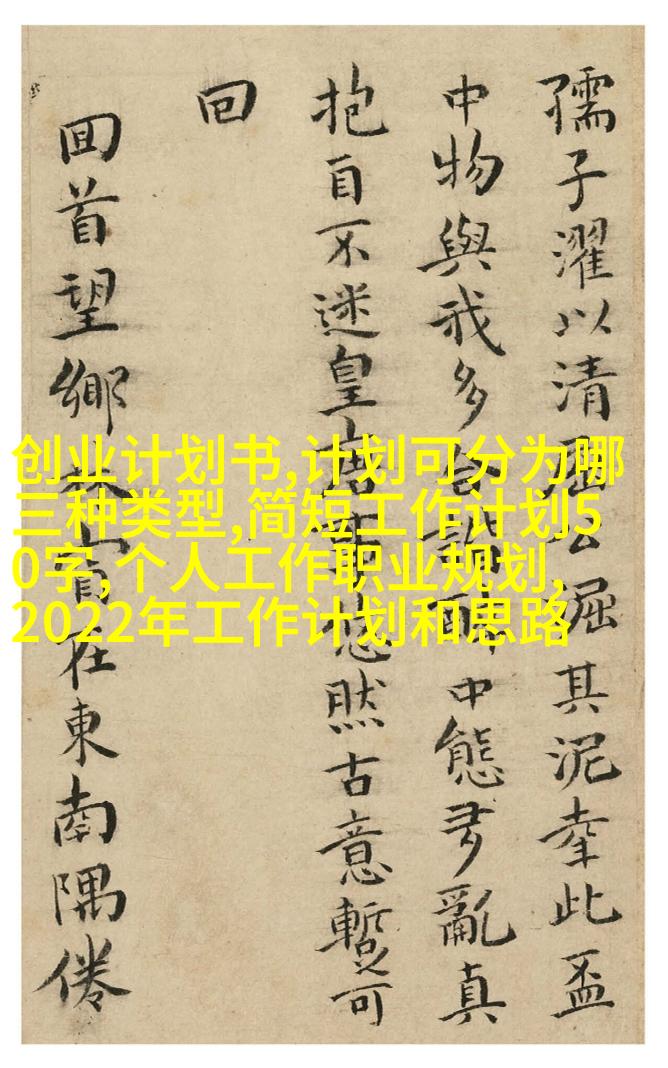 孺子濯以清屈公淈其泥幸此盃
中物與我多醉中態多亂真
抱自不迷皇唐悠然古意暫可
回
回首望鄉在東南隅倦
创业计划书,计划可分为哪
三种类型,简短工作计划5
0字,个人工作职业规划,
2022年工作计划和思路